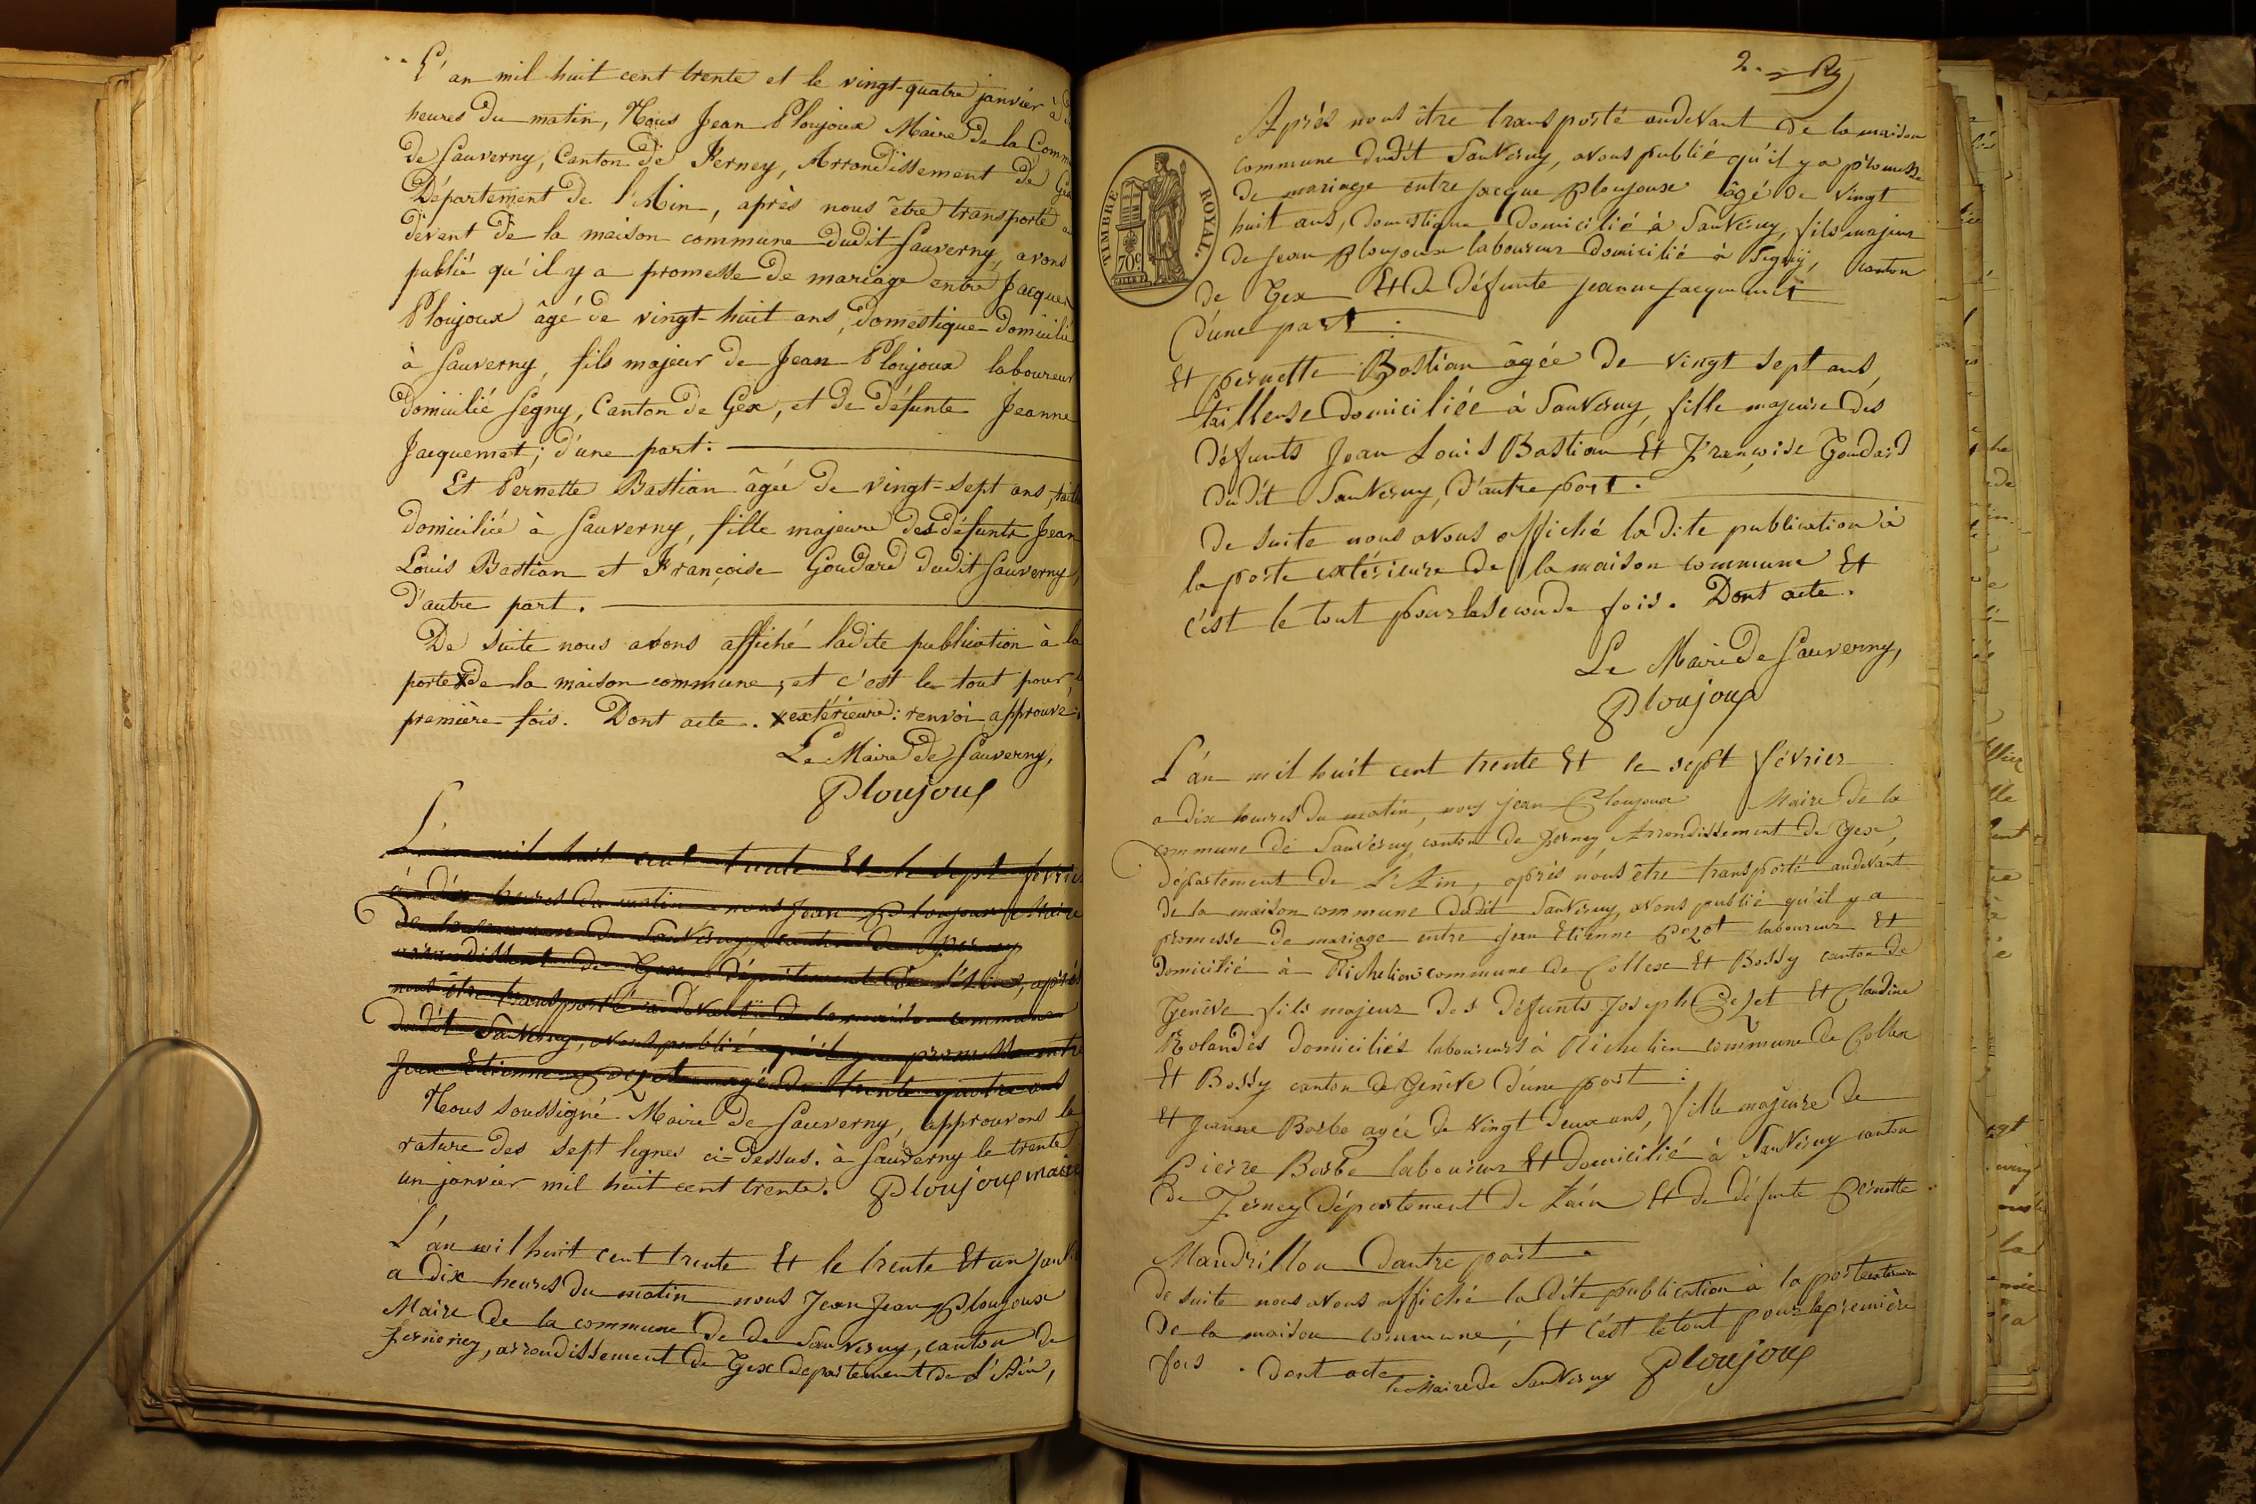 L'an mil huit cent trente et le vingt-quatre janvier à
heures du matin, Nous Jean Ploujoux Maire de la Comm
de Sauverny, Canton de Ferney, Arrondissement de Gex
Département de l'Ain, après nous être transporté au
devent de la maison commune dudit Sauverny, avons
publié qu'il y a promesse de mariage entre Jacques
Ploujoux âgé de vingt-huit ans, domestique domicilié
à Sauverny, fils majeur de Jean Ploujoux laboureur
domicilié Segny, Canton de Gex, et de défunte Jeanne
Jacquemet; d'une part.
Et Pernette Bastian âgée de vingt-sept ans,
domiciliée à Sauverny, fille majeure des défunts Jean
Louis Bastian et Françoise Goudard dudit Sauverny,
d'autre part.
De suite nous avons affiché ladite publication à la
porte X de la maison commune, et c'est le tout pour
première fois. Dont acte. X extérieure: renvoi approuvé.
Le Maire de Sauverny,
Ploujoux
L'an mil huit cent trente Et le sept février
à dix heures du matin nous Jean Ploujoux Maire
de la commune de Sauverny, canton de Ferney
arrondissement de Gex département de l'Ain, après
nous être transporté audevant de la maison commune
dudit Sauverny, avons publié qu'il y a promesse entre
Jean Etienne Pezet agé de trente quatre ans
Nous soussigné Maire de Sauverny, approuvons la
rature des sept lignes ci-dessus. à Sauverny le trente
un janvier mil huit cent trente. Ploujoux maire
L'an mil huit cent trente Et le trente Et un janvi
a dix heures du matin nous Jean Jean Ploujoux
Maire de la commune de de Sauverny, canton de
Ferney, arrondissement de Gex departement de l'Ain,
2.
Après nous être transporté audevant de la maison
commune dudit Sauverny, avons publié qu'il y a promesse
de mariage entre jacque Ploujoux âgé de vingt
huit ans, domestique domicilié à Sauverny, fils majeur
de Jean Ploujoux laboureur domicilié à Segny, canton
de Gex Et de défunte jeanne jacquemet
d'une part.
TIMBRE ROYAL.
70c
Et pernette Bastian âgée de vingt sept ans,
tailleuse domiciliée à Sauverny, fille majeure des
défunts Jean Louis Bastian Et Françoise Goudard
dudit Sauverny, d'autre part.
De suite nous avons affiché la dite publication à
la porte extérieure de la maison commune Et
c'est le tout pour la seconde fois. Dont acte.
Le Maire de Sauverny,
Ploujoux
L'an mil huit cent trente Et le sept février
a dix heures du matin, nous jean Ploujoux Maire de la
commune de Sauverny canton de Ferney, Arrondissement de Gex,
département de L'Ain, après nous être transporté audevant
de la maison commune dudit Sauverny, avons publié qu'il y a
promesse de mariage entre jean Etienne Pezet laboureur Et
domicilié à Richelien commune de Collex Et Bossy canton de
Genève fils majeur des défunts Joseph Pezet Et Claudine
Rolandès domiciliés laboureurs à Richelien commune de Collex
Et Bossy canton de Genève d'une part :
Et Jeanne Barbe agée de vingt deux ans, fille majeure de
Pierre Barbe laboureur Et domicilié à Sauverny canton
de Ferney département de L'ain Et de défunte Pernette
Mandrillon d'autre part.
De suite nous avons affiché la dite publication à la porte exterieure
de la maison commune; Et c'est le tout pour la première
fois. dont acte
le Maire de Sauverny Ploujoux